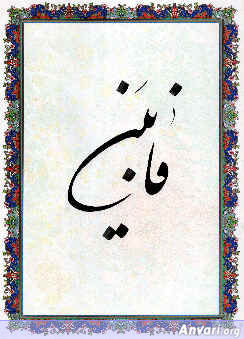 فابیَن
Anvari.org